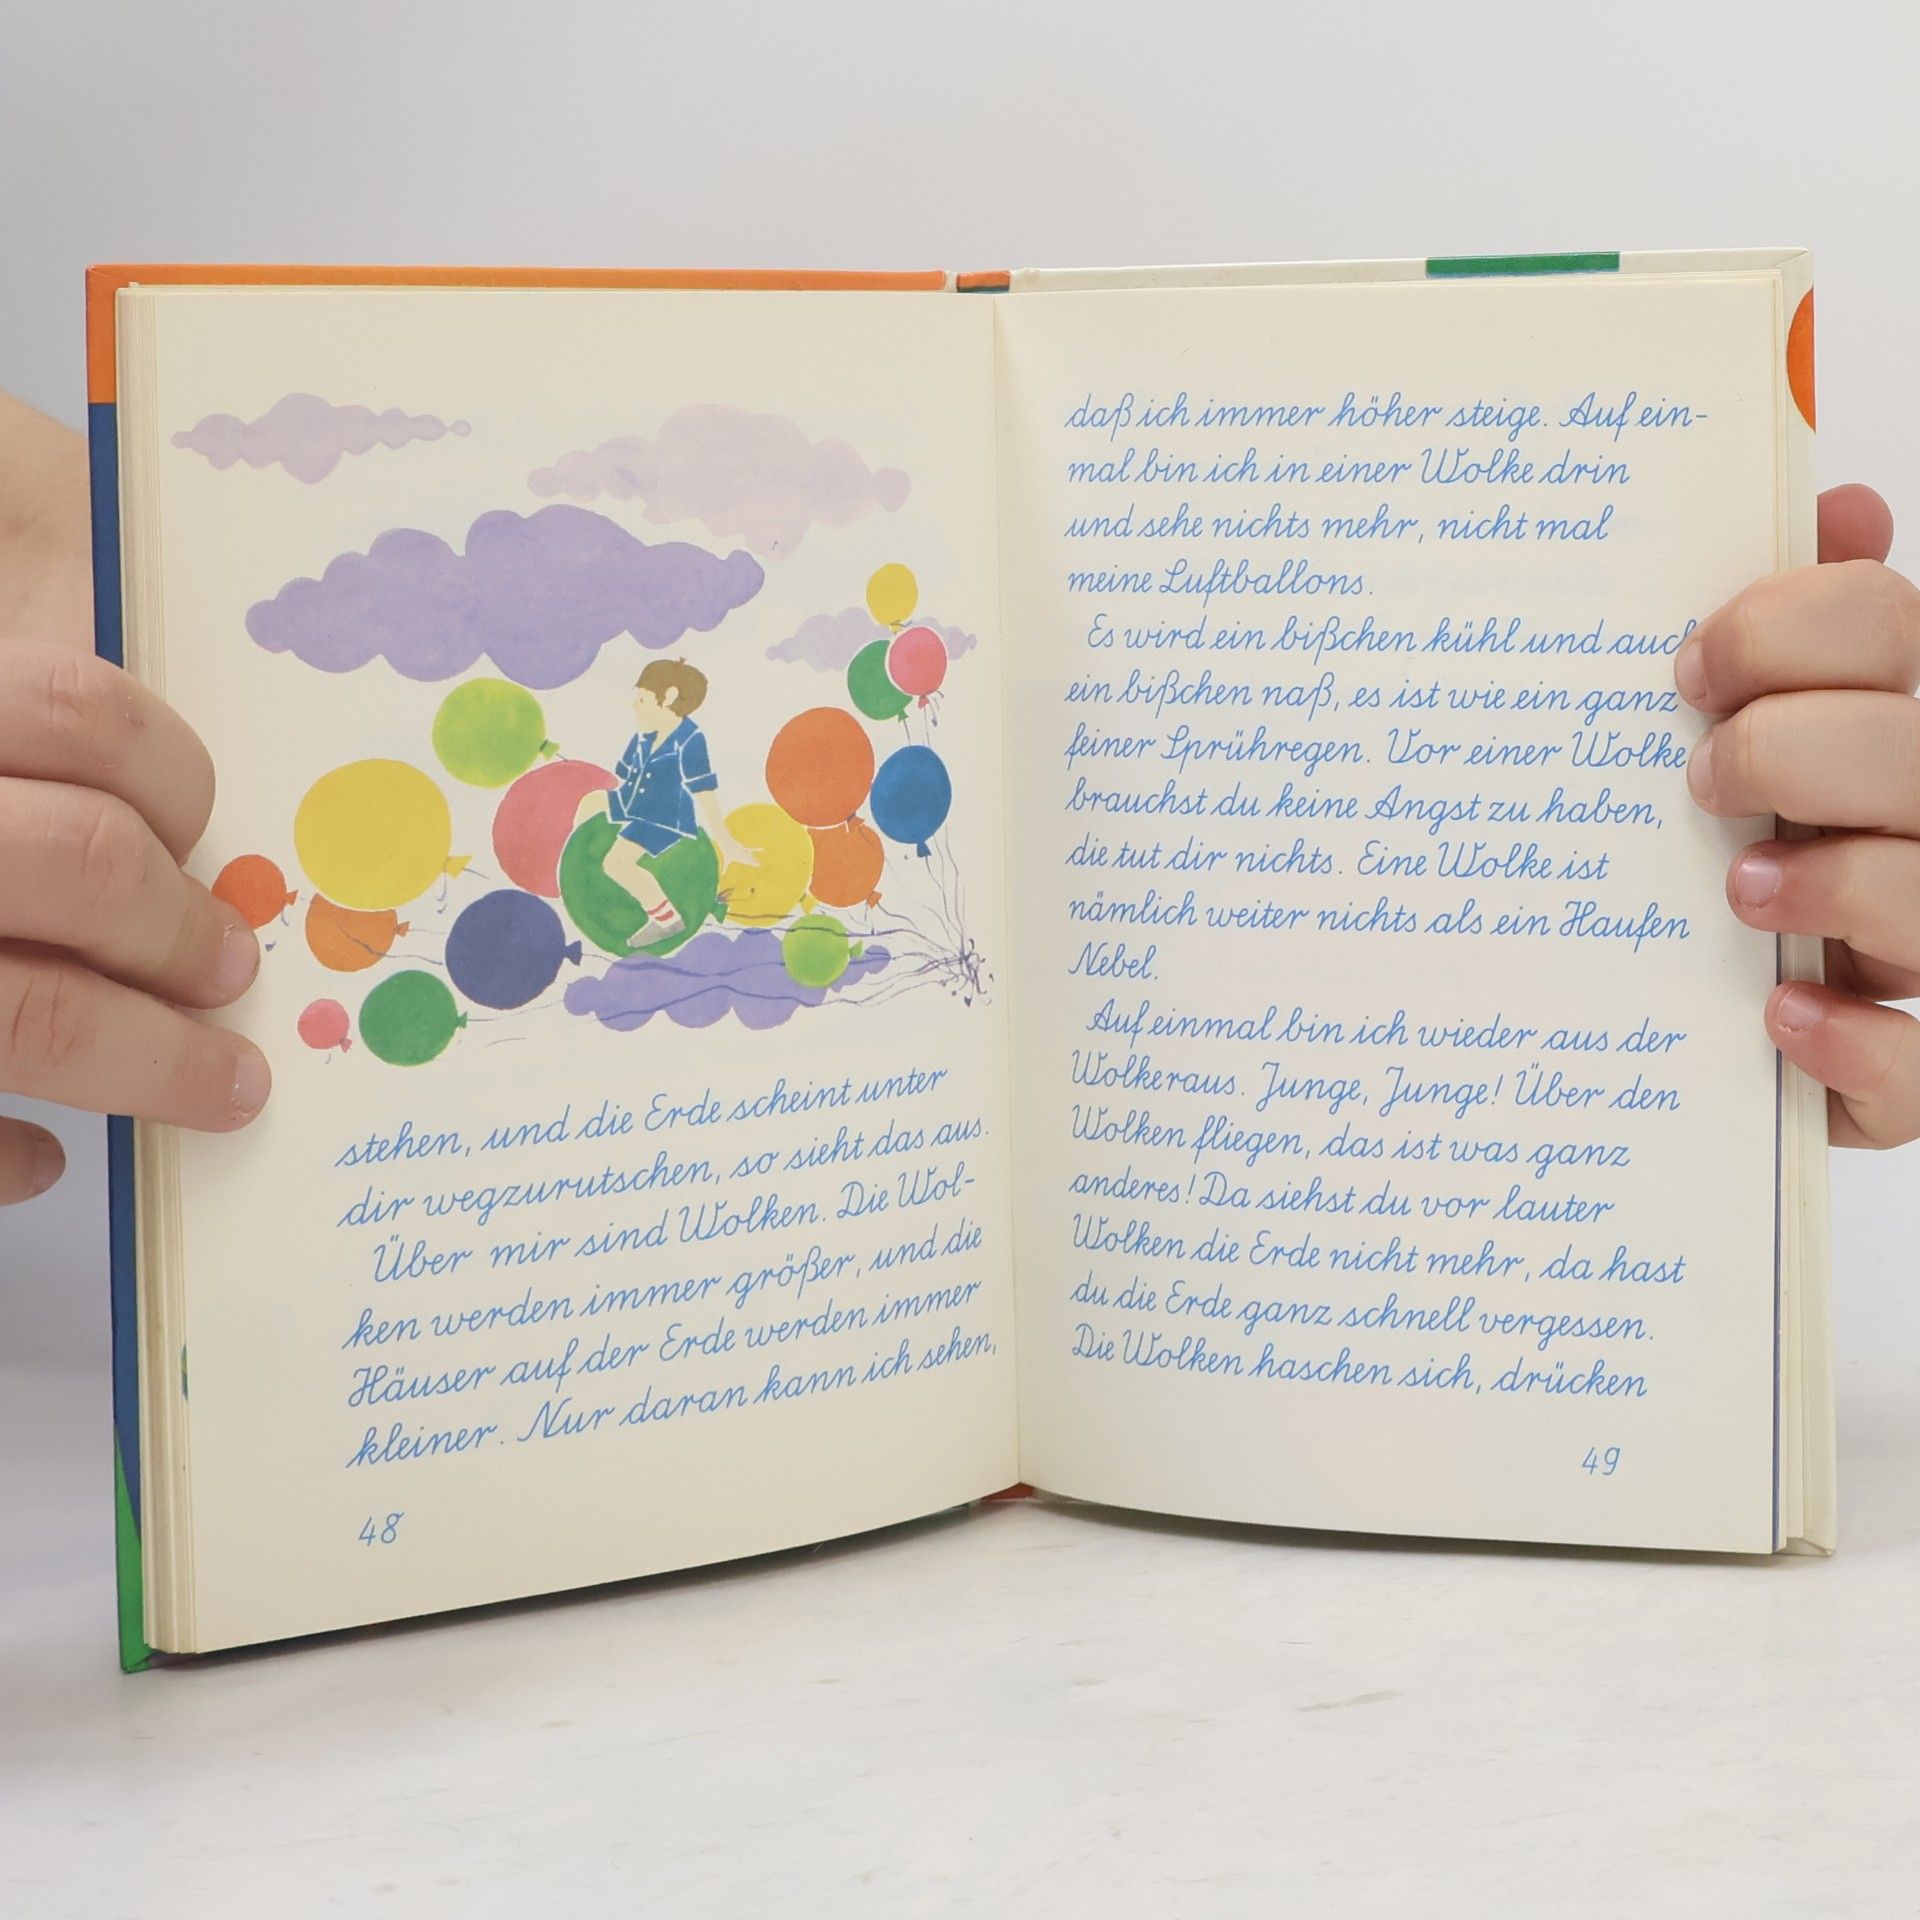 stehen, und die Erde scheint unter
dir wegzurutschen, so sieht das aus.
Über mir sind Wolken. Die Wol-
ken werden immer größer, und die
Häuser auf der Erde werden immer
kleiner. Nur daran kann ich sehen,
48
daß ich immer höher steige. Auf ein-
mal bin ich in einer Wolke drin
und sehe nichts mehr, nicht mal
meine Luftballons.
Es wird ein bißchen kühl und auch
ein bißchen naß, es ist wie ein ganz
feiner Sprühregen. Vor einer Wolke
brauchst du keine Angst zu haben,
die tut dir nichts. Eine Wolke ist
nämlich weiter nichts als ein Haufen
Nebel.
Auf einmal bin ich wieder aus der
Wolke raus. Junge, Junge! Über den
Wolken fliegen, das ist was ganz
anderes! Da siehst du vor lauter
Wolken die Erde nicht mehr, da hast
du die Erde ganz schnell vergessen.
Die Wolken haschen sich, drücken
49